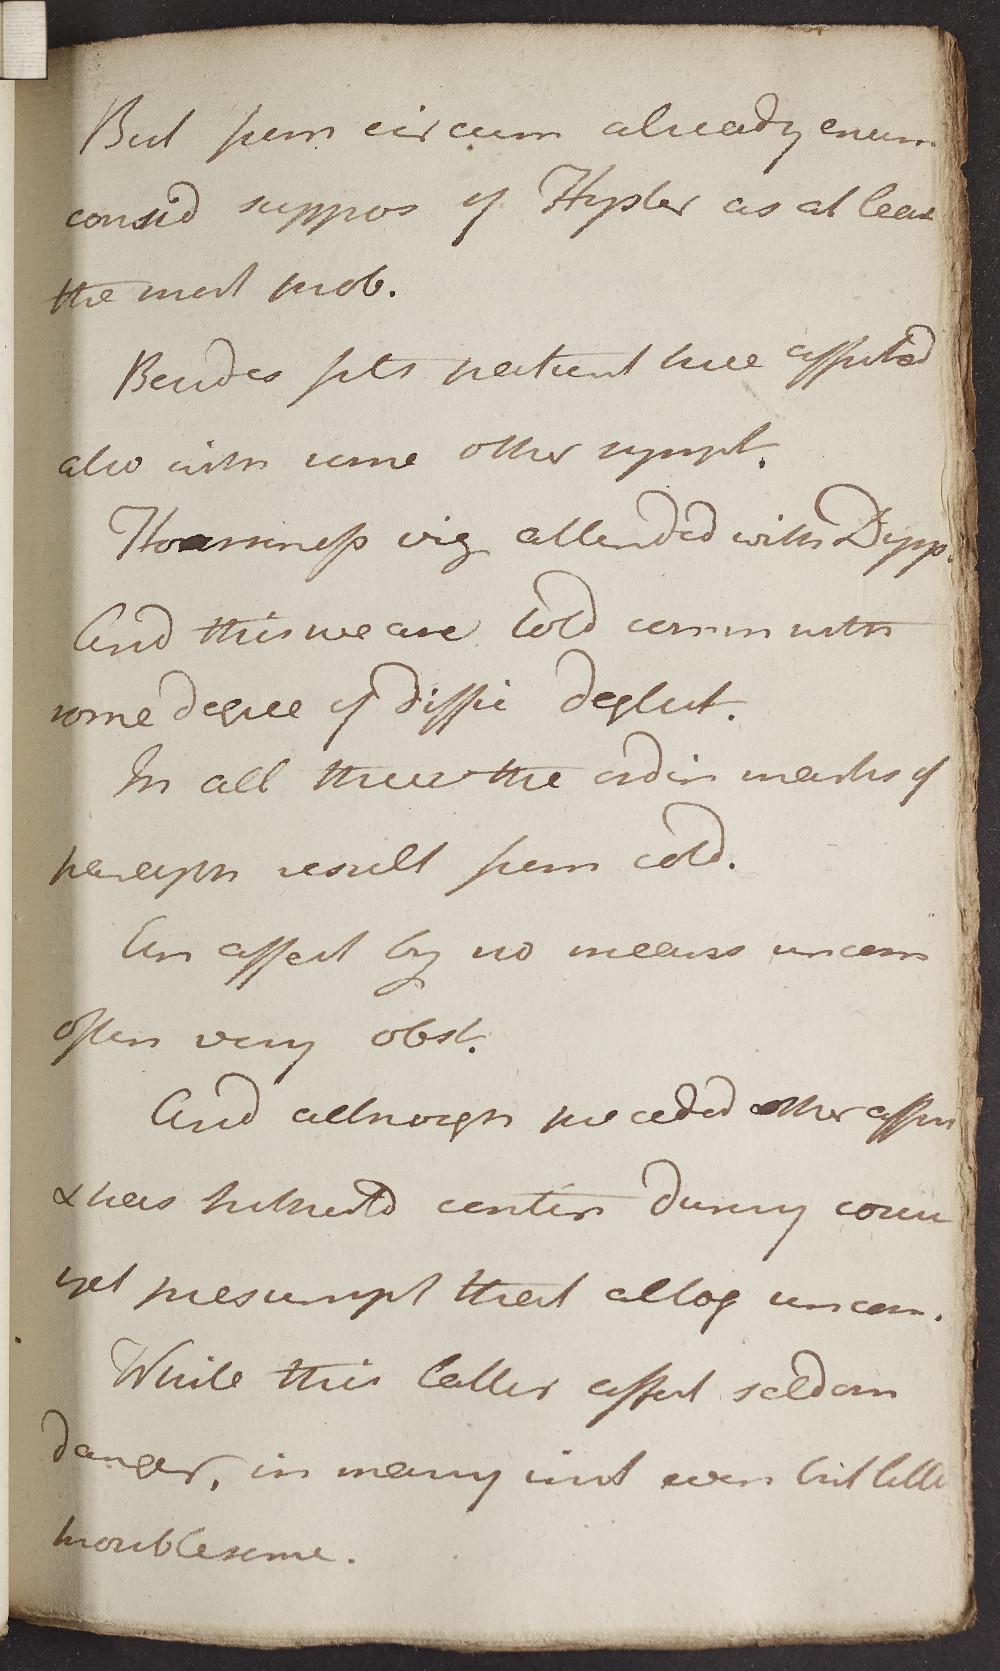 But from circum already enum
consid suppos of Hyster as at leas
the most prob.
Besides fits patient here affected
also with some other sympt.
Hoarseness viz attended with Dysp.
And this we are told comm with
some degree of diffic deglut.
In all these the ordin marks of
paroxysm result from cold.
An affect by no means uncom
often very obst.
And although preceded other affec
& has hitherto contin during cour
yet presumpt that altog uncon.
While this latter affect seldom
danger, in many inst even but little
troublesome.